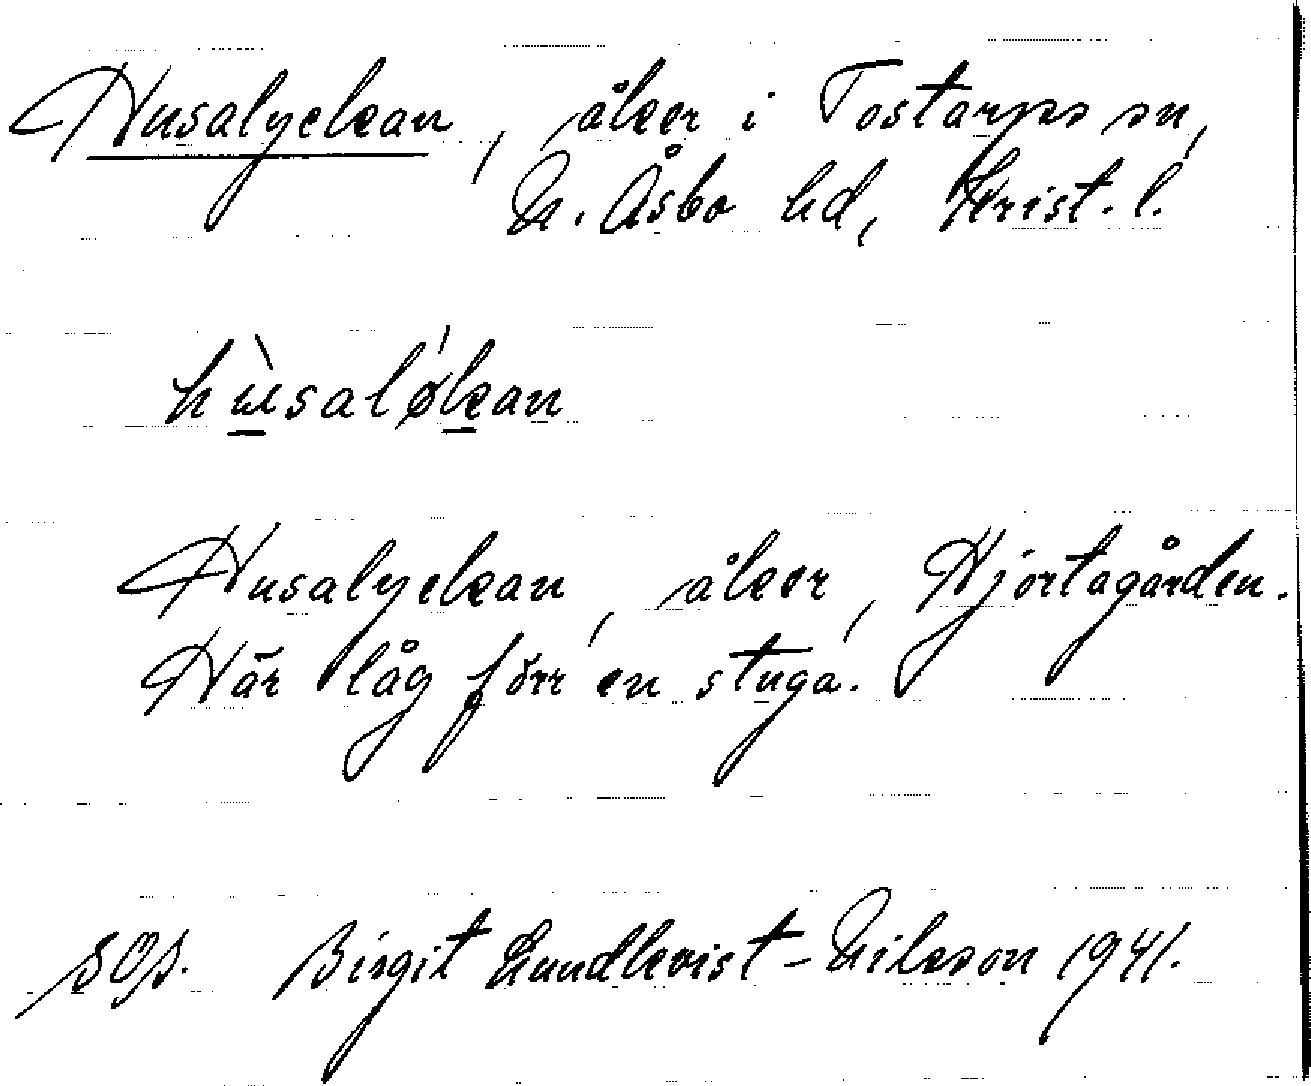 Husalyckan, åker i Tostarps sn,
N. Åsbo hd, Krist. l.
hùsaløkan
Husalyckan, åker, Hjortagården.
Här låg förr en stuga.
Birgit Lundkvist-Nilsson 1941.